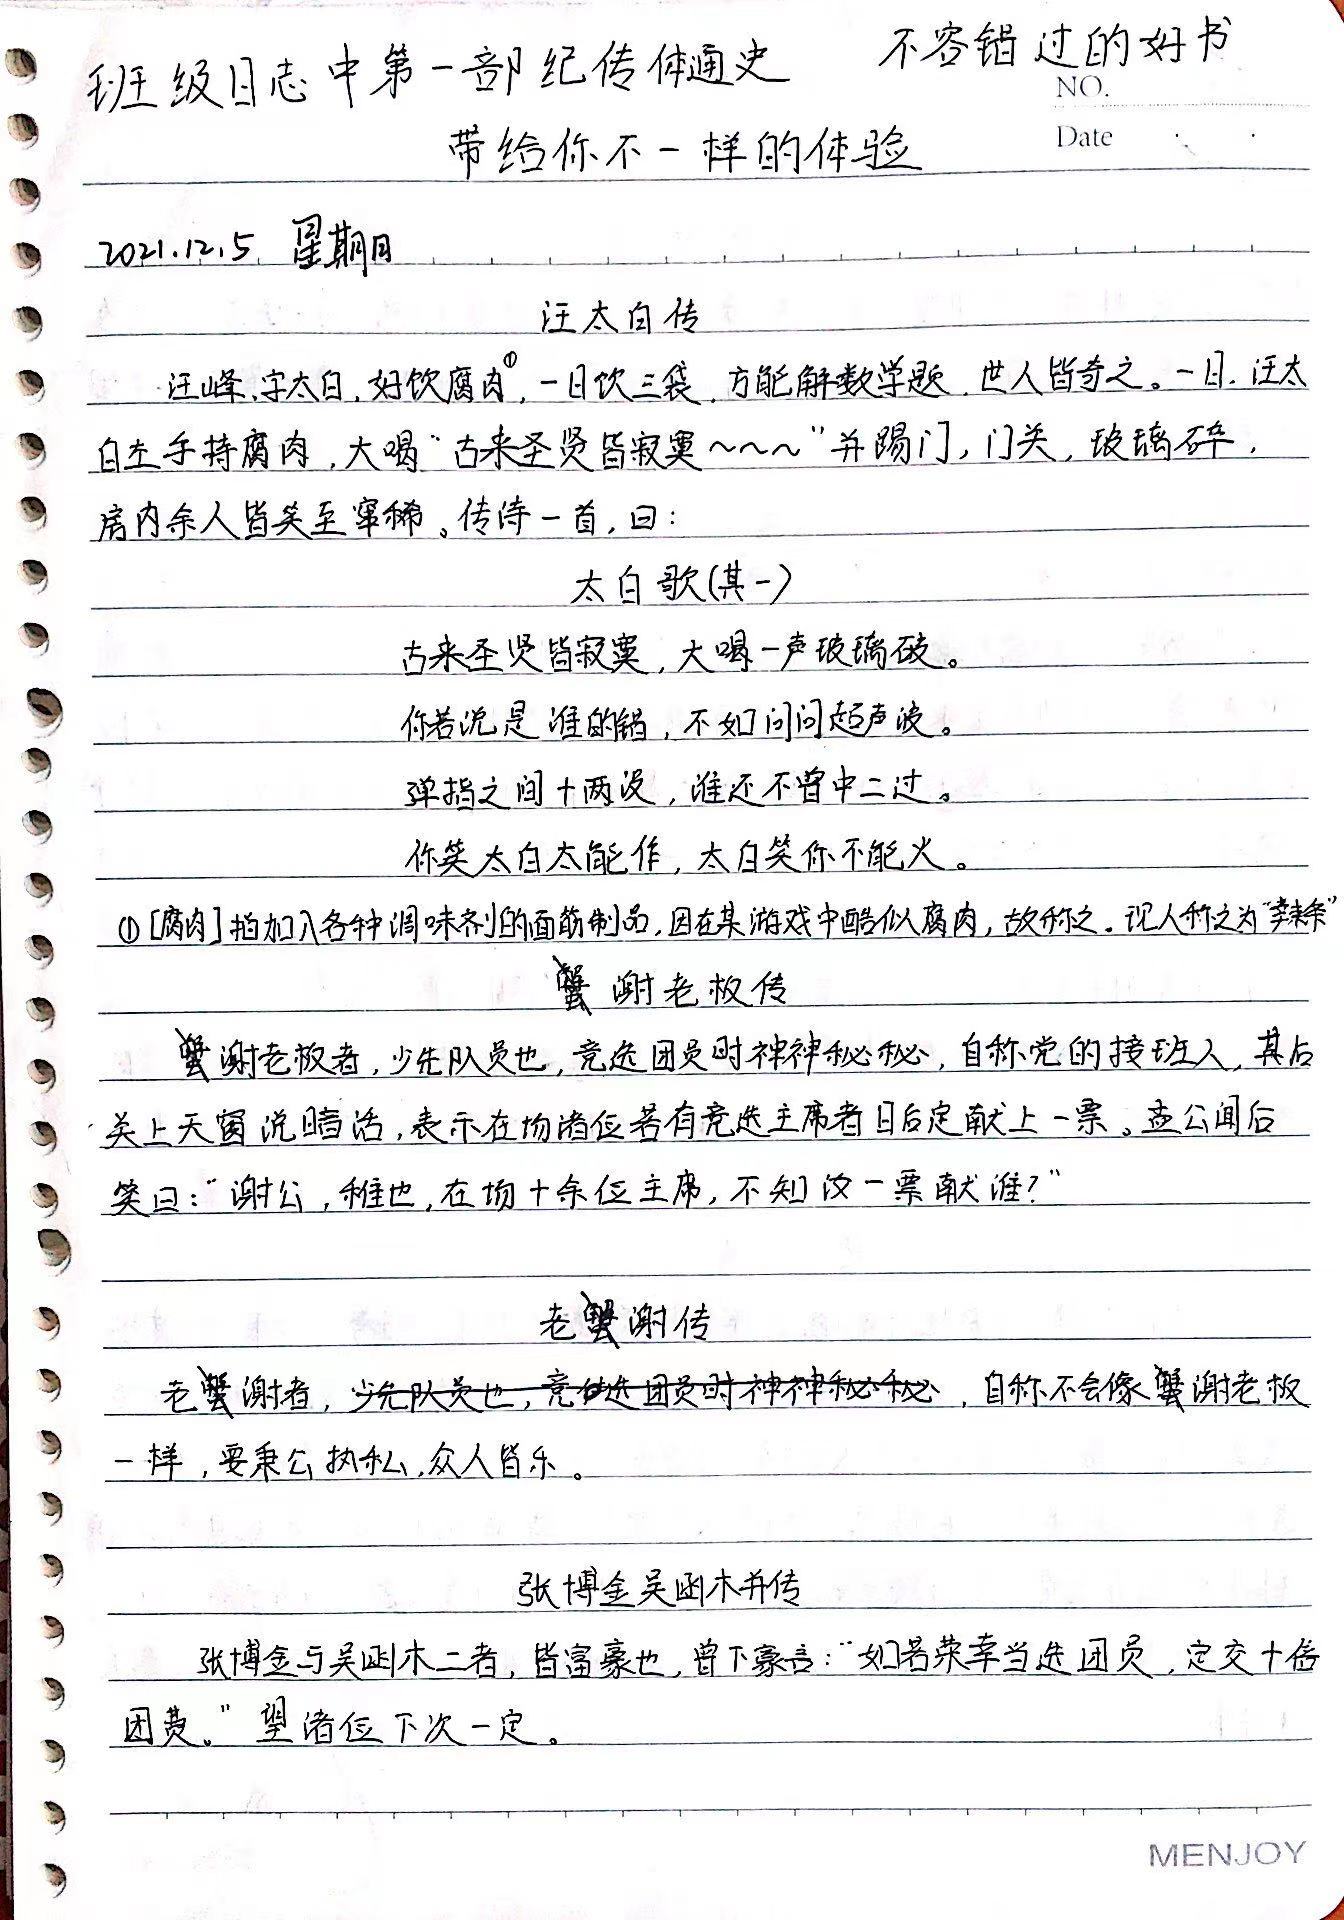 不容错过的好书
班级日志中第一部纪传体通史
NO.
带给你不一样的体验
Date
2021.12.5 星期日
汪太白传
汪峰,字太白,好饮腐肉①,一日饮三袋,方能解数学题,世人皆奇之。一日,汪太
白左手持腐肉,大喝“古来圣贤皆寂寞~~~”并踢门,门关,玻璃碎,
房内余人皆笑至窜稀。传诗一首,曰:
太白歌(其一)
古来圣贤皆寂寞,大喝一声玻璃破。
你若说是谁的错,不如问问超声波。
弹指之间十两没,谁还不曾中二过。
你笑太白太能作,太白笑你不能火。
①[腐肉]指加入各种调味剂的面筋制品,因在某游戏中酷似腐肉,故称之。讹人称之为“辣条”
蟹谢老板传
蟹谢老板者,少先队员也,竞选团员时神神秘秘,自称党的接班人,其后
关上天窗说暗话,表示在场诸位若有竞选主席者日后定献上一票。孟公闻后
笑曰:“谢公,稚也,在场十余位主席,不知汝一票献谁?”
老蟹谢传
老蟹谢者,少先队员也,竞选团员时神神秘秘,自称不会像蟹谢老板
一样,要秉公执私,众人皆乐。
张博金吴函木并传
张博金与吴函木二者,皆富豪也,曾下豪言:“如若荣幸当选团员,定交十倍
团费。”望诸位下次一定。
MENJOY